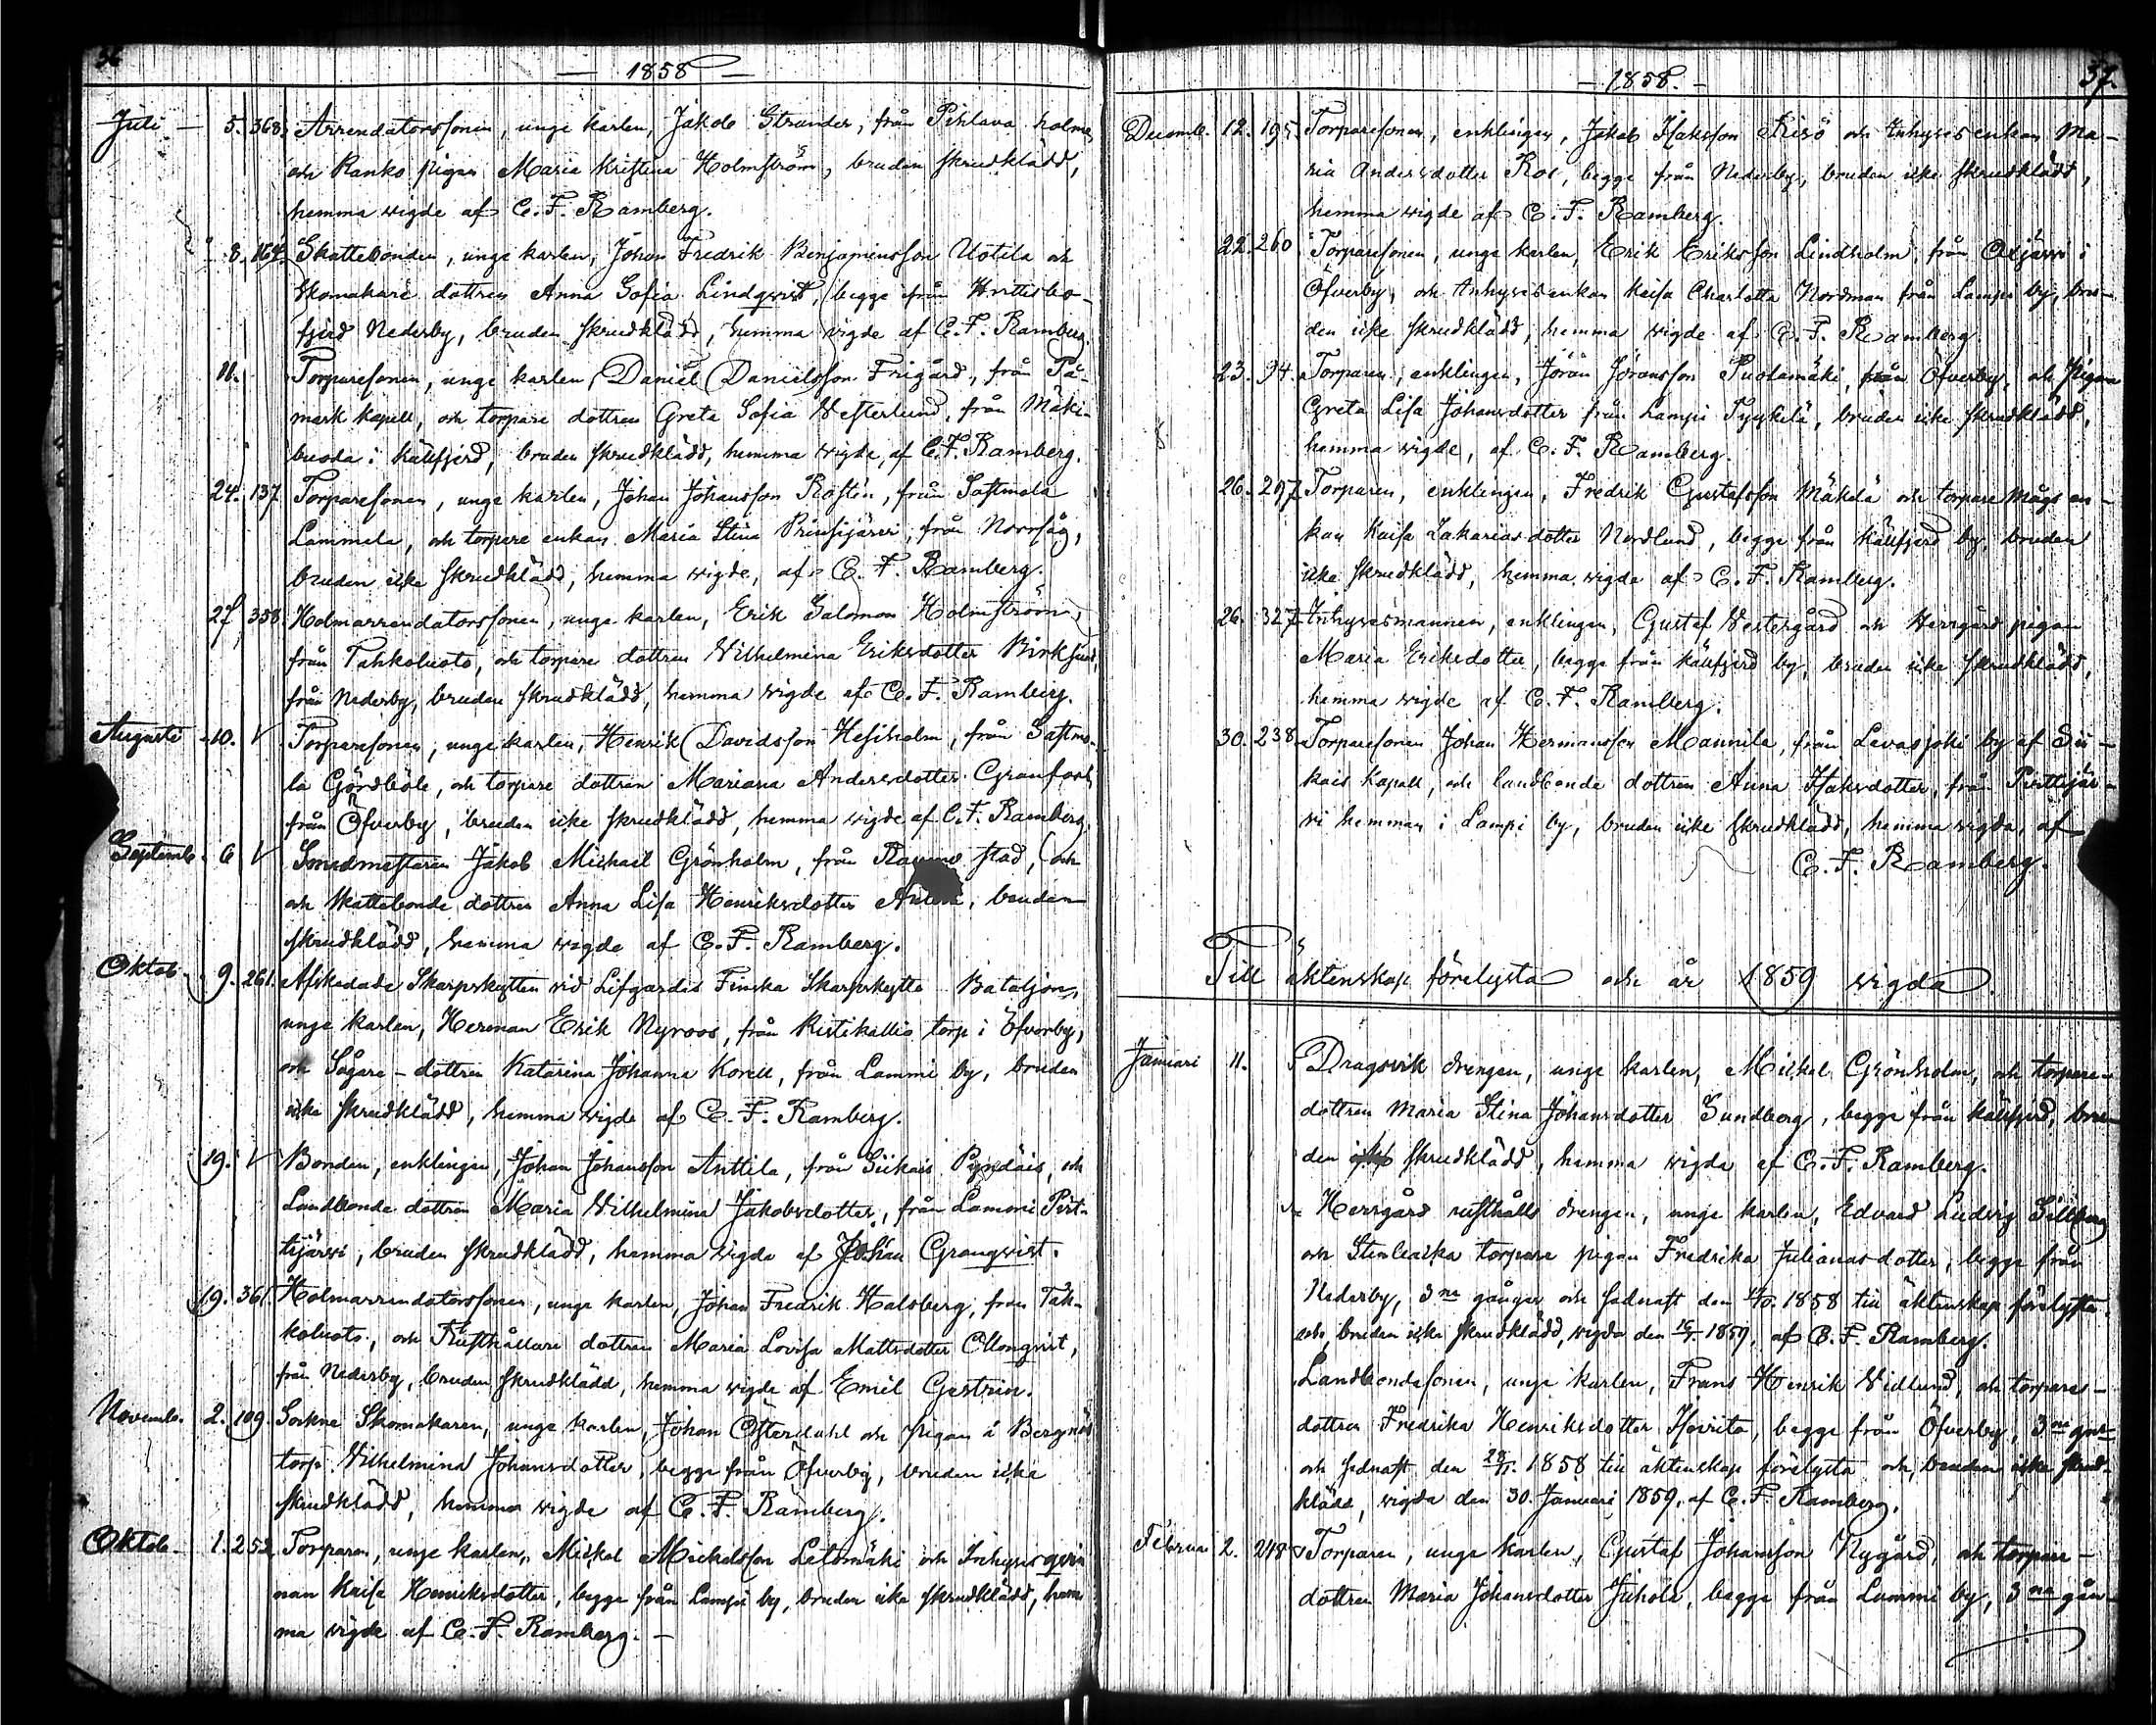 36
— 1858 —
Juli — 5. 368. Arrendatorssonen, unge karlen, Jakob Strander, från Pihlava holme,
och Ranko pigan Maria Kristina Holmström, bruden skrudklädd,
hemma vigde af C. F. Ramberg.
8. 164. Skattebonden, unge karlen, Johan Fredrik Benjaminsson Uotila och
Skomakare dottren Anna Sofia Lindqvist, begge från
fjerd Nederby, bruden skrudklädd, hemma vigde af C. F. Ramberg.
11. Torparesonen, unge karlen, Daniel Danielsson Frigård, från På-
mark kapell, och torpare dottren Greta Sofia Vesterlund, från Mäki-
buoda i Källfjerd, bruden skrudklädd, hemma vigde, af C. F. Ramberg.
24. 137. Torparesonen, unge karlen, Johan Johansson Rostén, från Sastmola
Lammela, och torpare enkan Maria Stina, från Norrsåg,
bruden icke skrudklädd, hemma vigde, af C. F. Ramberg.
27. 358. Holmarrendatorssonen, unge karlen, Erik Salomon Holmström,
från Tahkoluoto, och torpare dottren Vilhelmina Eriksdotter
från Nederby, bruden skrudklädd, hemma vigde af C. F. Ramberg.
Augusti - 10. V Torparesonen, unge karlen, Henrik Davidsson Hesiholm, från Sastmo-
la Gördböle, och torpare dottren Mariana Andersdotter Granfors
från Öfverby, bruden icke skrudklädd, hemma vigde af C. F. Ramberg.
Septemb. 6 V Smedmestaren Jakob Michail Grönholm, från Raumo stad, och
och Skattebonde dottren Anna Lisa Henriksdotter, bruden
skrudklädd, hemma vigde af C. F. Ramberg.
Oktob. 9. 261. Afskedade Skarpskytten vid Lifgardes Finska Skarpskytte Bataljon,
unge karlen, Herman Erik Nyroos, från Ristikallio torp i Öfverby,
och Sågare-dottren Katarina Johanna Korell, från Lammi by, bruden
icke skrudklädd, hemma vigde af C. F. Ramberg.
19. V Bonden, enklingen, Johan Johansson Anttila, från Siikais Pyndäis, och
Landbonde dottren Maria Vilhelmina Jakobsdotter, från Lammi Pirt-
tijärvi, bruden skrudklädd, hemma vigde af Johan Granqvist.
19. 361. Holmarrendatorssonen, unge karlen, Johan Fredrik Halsberg, från Tah-
koluoto, och Rusthållare dottren Maria Lovisa Mattsdotter
från Nederby, bruden skrudklädd, hemma vigde af Emil Gestrin.
Novemb. 2. 109. Sockne Skomakaren, unge karlen, Johan Österdahl och pigan å Bergnäs
torp Vilhelmina Johansdotter, begge från Öfverby, bruden icke
skrudklädd, hemma vigde af C. F. Ramberg.
Oktob. 1. 252. Torparen, unge karlen, Mickel Mickelsson Letomäki och Inhyses qvin
nan Kaisa Henriksdotter, begge från Lampi by, bruden icke skrudklädd, hem-
ma vigde af C. F. Ramberg. —
37.
— 1858. —
Decemb. 12. 195. Torparesonen, enklingen, Jakob Isaksson och Inhyses enkan Ma-
ria Andersdotter Ros, begge från Nederby, bruden icke skrudklädd,
hemma vigde af C. F. Ramberg.
22. 260 Torparesonen, unge karlen, Erik Eriksson Lindholm, från Oxjärvi i
Öfverby, och Inhyses enkan Kaisa Charlotta Nordman från Lampi by, bru-
den icke skrudklädd, hemma vigde af C. F. Ramberg.
23. 94. Torparen, enklingen, Jöran Jöransson Puolamäki, från Öfverby, och pigan
Greta Lisa Johansdotter från Lampi Tyykelä, bruden icke skrudklädd,
hemma vigde, af C. F. Ramberg.
26. 297 Torparen, enklingen, Fredrik Gustafsson Mäkelä och torpare mågs en-
kan Kaisa Zakariasdotter Nordlund, begge från Källfjerd by, bruden
icke skrudklädd, hemma vigde af C. F. Ramberg.
26. 327 Inhysesmannen, enklingen, Gustaf Vestergård och Herrgårds pigan
Maria Eriksdotter, begge från Källfjerd by, bruden icke skrudklädd,
hemma vigde af C. F. Ramberg.
30. 238 Torparesonen Johan Hermansson Mannila, från Levasjoki by af Sii-
kais Kapell, och landbonde dottren Anna Isaksdotter, från Pirttijär-
vi hemman i Lampi by, bruden icke skrudklädd, hemma vigde, af
C. F. Ramberg.
Till äktenskap förelysta och år 1859 vigda.
Januari 11. Dragsvik drengen, unge karlen, Mickel Grönholm, och torpare-
dottren Maria Stina Johansdotter Sundberg, begge från Källfjerd, bru-
den skrudklädd, hemma vigda af C. F. Ramberg.
Herrgård rusthålls drengen, unge karlen, Edvard Ludvig
och torpare pigan Fredrika Julianasdotter, begge från
Nederby, 3ne gånger och sednast den 1858 till äktenskap förelysta
och, bruden icke skrudklädd, vigda den 1859, af C. F. Ramberg.
Landbondesonen, unge karlen, Frans Henrik Vidlund, och torpares-
dottren Fredrika Henriksdotter, begge från Öfverby, 3ne gnr
och sednast den 28/11. 1858 till äktenskap förelysta och, bruden icke skrud-
klädd, vigda den 30. Januari 1859, af C. F. Ramberg.
Februari 2. 248 Torparen, unge karlen, Gustaf Johansson Nygård, och torpare-
dottren Maria Johansdotter Juhola, begge från Lammi by, 3ne gån-